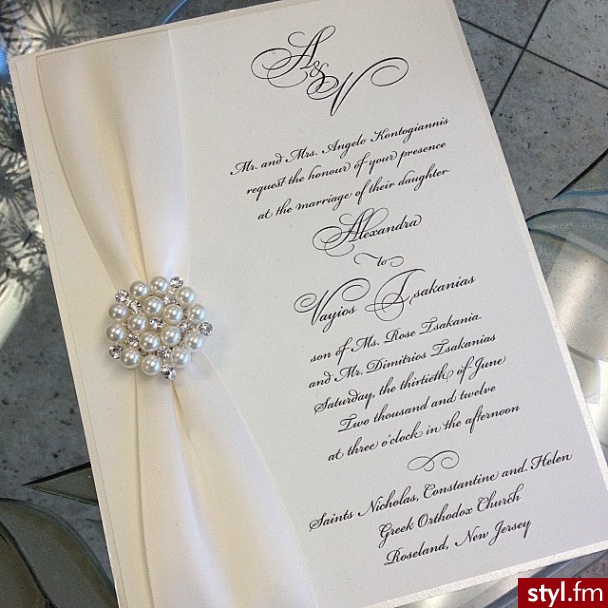 A & V
Mr. and Mrs. Angelo Kontogiannis
request the honour of your presence
at the marriage of their daughter
Alexandra
to
Vayios Tsakanias
son of Ms. Rose Tsakania
and Mr. Dimitrios Tsakanias
Saturday, the thirtieth of June
Two thousand and twelve
at three o'clock in the afternoon
Saints Nicholas, Constantine and Helen
Greek Orthodox Church
Roseland, New Jersey
styl.fm